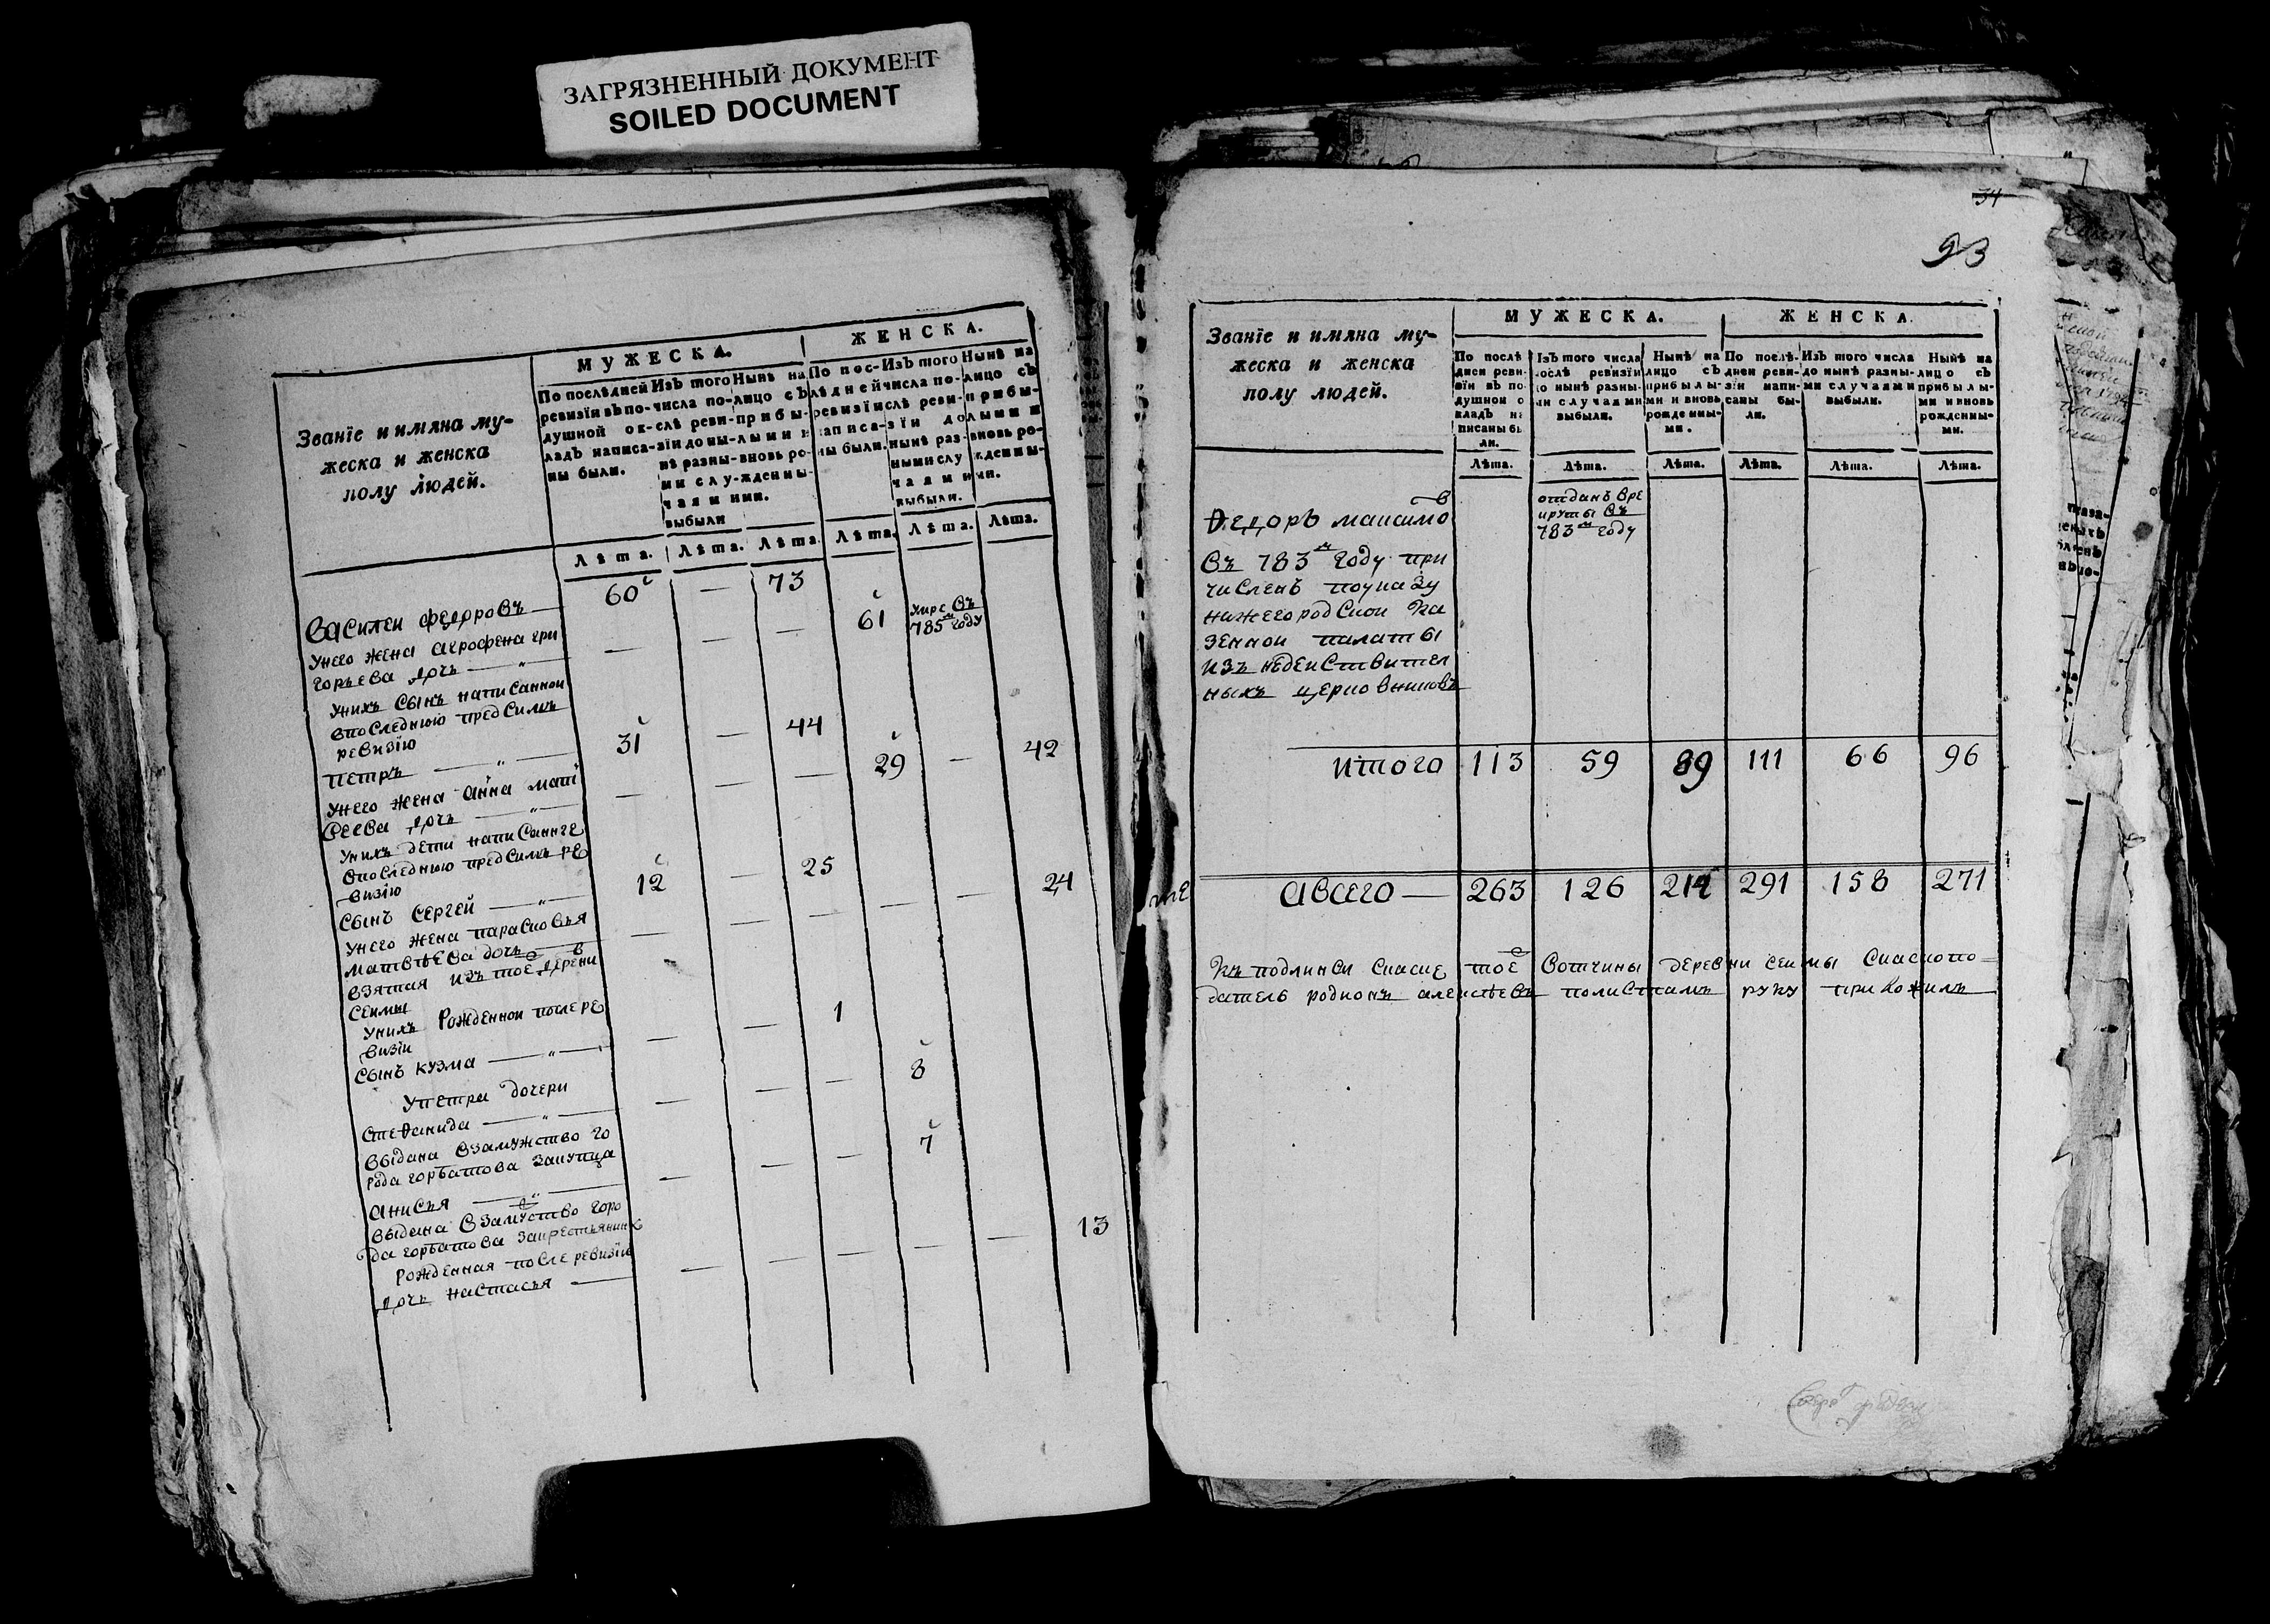 ЗАГРЯЗНЕННЫЙ ДОКУМЕНТ
SOILED DOCUMENT
Званїе и имяна му-
жеска и женска
полу людей.
МУЖЕСКА.
ЖЕНСКА.
По послѣдней
ревизїи въ по-
душной ок-
ладъ написа-
ны были.
Изъ того
числа по-
слѣ реви-
зїи до ны-
нѣ разны-
ми слу-
чаями
выбыли
Нынѣ на
лицо съ
прибы-
лыми и
вновь ро-
жденны-
ми.
По пос-
лѣдней
ревизїи
написа-
ны были.
Изъ того
числа по-
слѣ реви-
зїи до
нынѣ раз-
ными слу
чаями
выбыли.
Нынѣ на
лицо съ
прибы-
лыми и
вновь ро-
жденны-
ми.
Лѣта. Лѣта. Лѣта. Лѣта. Лѣта. Лѣта.
Василеи федоровъ — 60 — 73
Унего жена агрофена гри
горьева дочь — — — 61 умре въ 785м году
Унихъ сынъ написанnои
впоследнюю предсимъ
ревизїю
петръ — 31 — 44
Унего жена анна мат
веева дочь — — — 29 — 42
Унихъ дети написанные
впоследнюю предсимъ ре
визїю
Сынъ Сергей — 12 — 25
Унего жена парасковья
матвѣева дочь — — — — — 24
взятая изъ тое дерени
сеимы
Унихъ Рожденнои после ре
визїи
Сынъ кузма — — — 1
Упетра дочери
стеѳанида — — — 8
выдана взамужство го
рода горбатова закупца
анисья — — — 7
выдана взамуство горо
да горбатова закрестьянина
Рожденная после ревизїи
дочь настасья — — — — — 13
34
93
Званїе и имяна му-
жеска и женска
полу людей.
МУЖЕСКА.
ЖЕНСКА.
По послѣ
дней реви-
зїи въ по-
душной о
кладъ на
писаны бы
ли.
Изъ того числа
послѣ ревизїи
до нынѣ разны-
ми случаями
выбыли.
Нынѣ на
лицо съ
прибылы-
ми и вновь
рожденны-
ми.
По послѣ-
дней реви-
зїи напи-
саны бы-
ли.
Изъ того числа
до нынѣ разны-
ми случаями
выбыли.
Нынѣ на
лицо съ
прибылы-
ми и вновь
рожденны-
ми.
Лѣта. Лѣта. Лѣта. Лѣта. Лѣта. Лѣта.
Ѳедоръ максимов
отданъ вре
круты въ
783м году
въ 783м году при
численъ поуказу
нижегородскои ка
зеннои палаты
изъ недеиствител
ныхъ церковниковъ
итого 113 59 89 111 66 96
авсего — 263 126 214 291 158 271
тое вотчины деревни сеимы
руку приложилъ